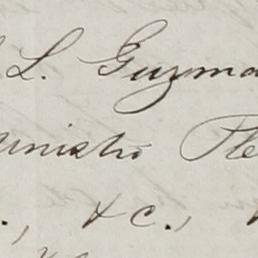 L. Guzma
inistro Ple
., &c.,